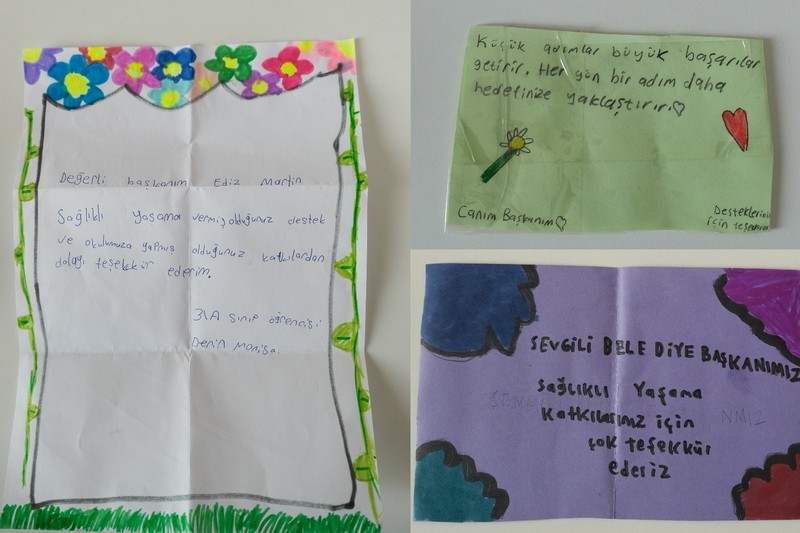 Değerli başkanım Ediz Martin
Sağlıklı yaşama vermiş olduğunuz destek
ve okulumuza yapmış olduğunuz katkılardan
dolağı teşekkür ederim.
3\A sınıf öğrencisi
Küçük adımlar büyük başarılar
getirir. Her gün bir adım daha
hedefinize yaklaştırır.
Canım Başkanım
Desteklerini
için
SEVGİLİ BELEDİYE BAŞKANIMIZ
Sağlıklı Yaşama
Katkılarınız için
çok teşekkür
ederiz